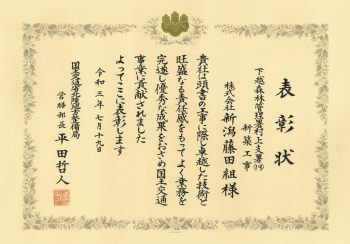 表彰状
下越森林管理署村上支署(19)
新築工事
株式会社 新潟藤田組 様
貴社は頭書の工事に際し卓越した技術と
旺盛なる責任感をもってよく業務を
完遂し優秀な成果をおさめ国土交通
事業に貢献されました
よってここに表彰します
令和三年七月十九日
国土交通省北陸地方整備局
営繕部長 平田哲人